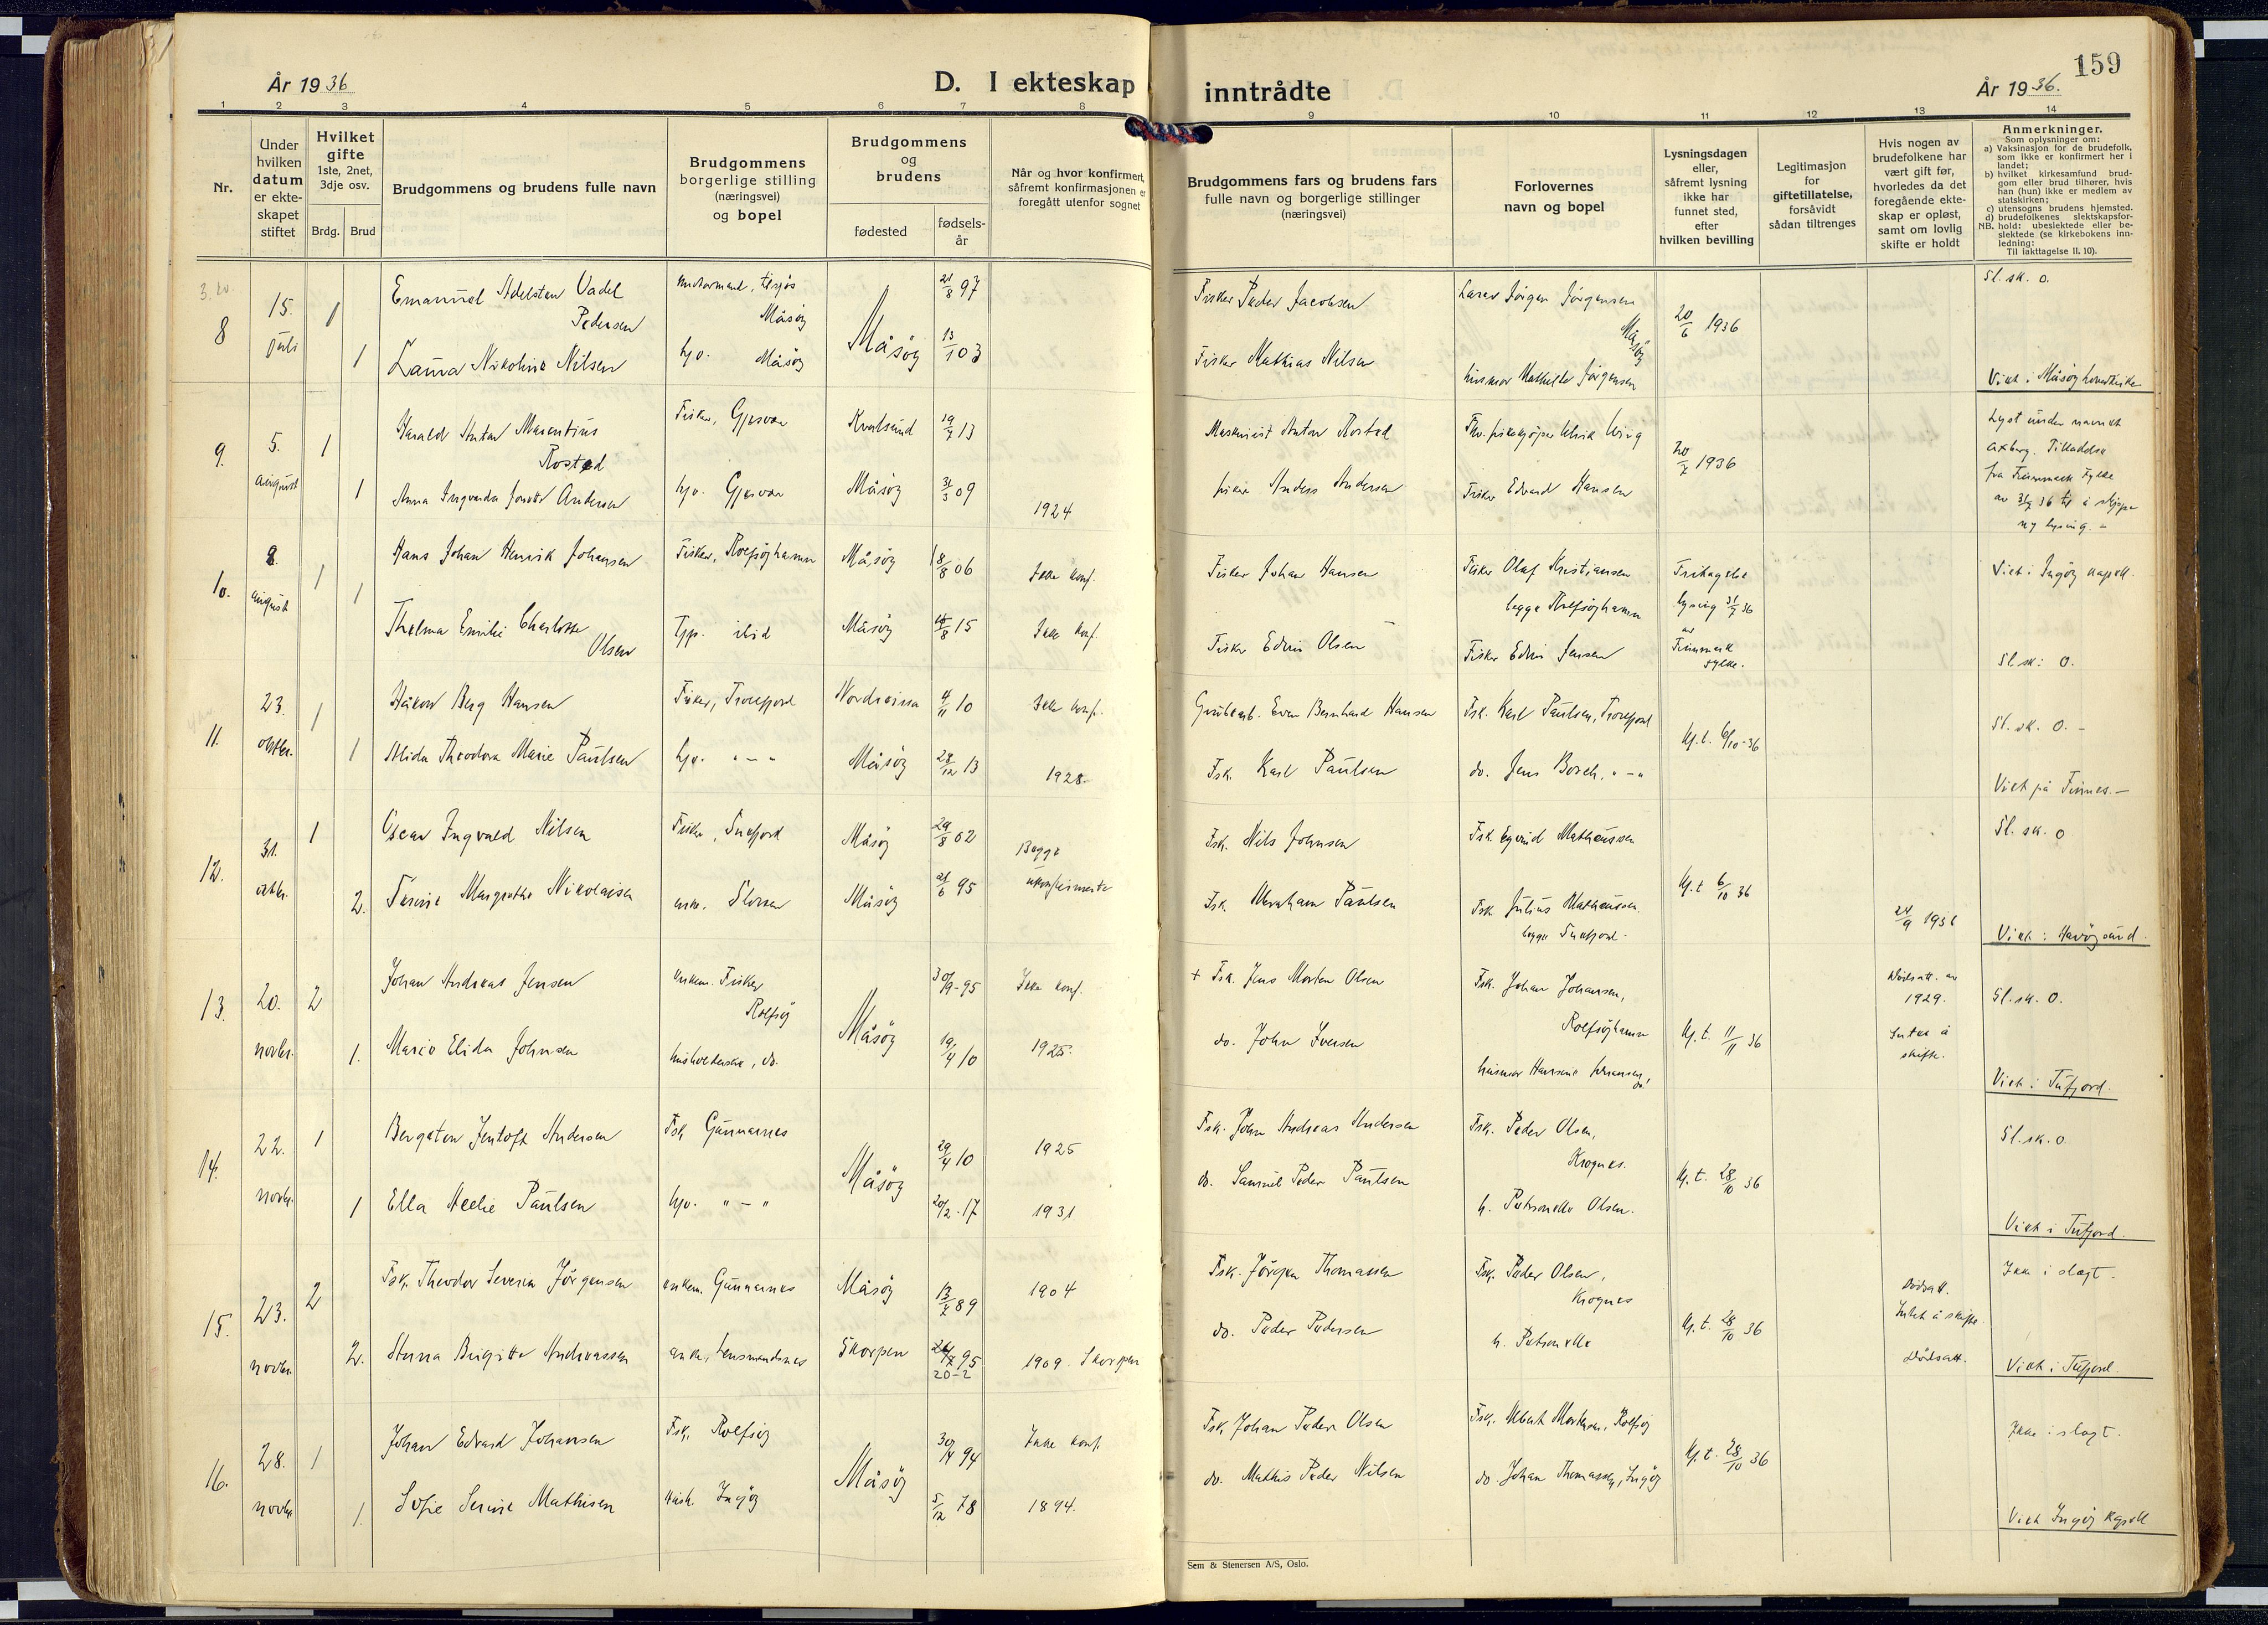 159
År 1936
D. I ekteskap inntrådte
År 1936.
1 2 3 4 5 6 7 8 9 10 11 12 13 14
Nr.
Under hvilken datum er ekte-skapet stiftet
Hvilket gifte
1ste, 2net, 3dje osv.
Brdg. Brud
Brudgommens og brudens fulle navn
Brudgommens borgerlige stilling (næringsvei) og bopel
Brudgommens og brudens
fødested
fødsels-år
Når og hvor konfirmert, såfremt konfirmasjonen er foregått utenfor sognet
Brudgommens fars og brudens fars fulle navn og borgerlige stillinger (næringsvei)
Forlovernes navn og bopel
Lysningsdagen eller, såfremt lysning ikke har funnet sted, efter hvilken bevilling
Legitimasjon for giftetillatelse, forsåvidt sådan tiltrenges
Hvis nogen av brudefolkene har vært gift før, hvorledes da det foregående ekte-skap er opløst, samt om lovlig skifte er holdt
Anmerkninger.
Som oplysninger om:
a) Vaksinasjon for de brudefolk, som ikke er konfirmert her i landet;
b) hvilket kirkesamfund brud-gom eller brud tilhører, hvis han (hun) ikke er medlem av statskirken;
c) utensogns brudens hjemsted.
d) brudefolkenes slektskapsfor-hold: ubeslektede eller be-slektede (se kirkebokens inn-ledning:
NB.
Til iakttagelse II. 10).
8 15. juli 1 Emanuel Adelsten Vadel Pedersen Måsøy 21/8 97 Fisker Peder Jacobsen Lærer Jörgen Jörgensen Måsøy 20/6 1936 Sl. sk. 0.
1 Laura Nikoline Nilsen hjv. Måsøy Måsøy 13/1 03 Fisker Mathias Nilsen husmor Mathilde Jörgensen Viet i Måsøy hovedkirke
9. 5. august 1 Harald Anton Marentius Rostad Fisker, Gjesvær Kvalsund 19/7 13 Maskinist Anton Rostad 20/7 1936 Lyst under navnet Axberg. Tilladelse
1 Anna Ingvarda Jonette Andersen hjv. Gjesvær Måsøy 31/3 09 1924 fisker Anders Andersen Fisker Edvard Hansen fra Finnmark Fylke av 31/7 36 til å sløjfe ny lysing. -
10. 8. august 1 Hans Johan Henrik Johansen Fisker, Rolfsøyhamn Måsøy 18/8 06 Ikke konf. Fisker Johan Hansen Fisker Olaf Kristiansen begge Rolfsøyhamn Fritagelse lysing 31/7 36 av Finnmark fylke. Viet i Ingøy kapell.
1 Thelma Emilie Charlotte Olsen Tjp. ibid Måsøy 15 Ikke konf. Fisker Edvin Olsen Fisker Edvin Jensen Sl sk: 0.
11. 23. oktbr. 1 Håkon Berg Hansen Fisker, Trollfjord Nordreisa 4/11 10 Ikke konf. Grubearb. Even Bernhard Hansen Fsk. Karl Paulsen, Trollfjord Kj. t. 6/10-36 Sl. sk. 0. -
1 Alida Theodora Marie Paulsen hjv. " - " Måsøy 28/12 13 1928. Fsk. Karl Paulsen do. Jens Borch, " - " Viet på Finnes. -
12. 31. oktbr. 1 Oscar Ingvald Nilsen Fisker, Snefjord Måsøy 29/8 02 Begge ukonfirmerte Fsk. Nils Johnsen Fsk. Eyvind Matheussen Kj. t 6/10 36 Sl. sk. 0
2. Tunie Margrethe Nikolaisen enke. Måsøy 21/6 95 Fsk. Abraham Paulsen Fsk. Julius Matheussen. begge Snefjord. 24/9 1931 Viet i Havøysund.
13. 20. novbr. 2 Johan Andreas Jensen enkem. Fisker Rolfsøy Måsøy 30/9-95 Ikke konf. + Fsk. Jens Morten Olsen Fsk. Johan Johansen, Rolfsøyhamn Kj. t. 11/11 36 Dödsatt. av 1929. Intet å skifte. Sl. sk. 0.
1. Marie Elida Johnsen husholderske, do. 19/4 10 1925. do. John Iversen husmor Hansine Johansen, do! Viet i Tufjord.
14. 22. novbr. 1 Bergeton Jentoft Andersen Fsk Gunnarnes Måsøy 29/4 10 1925 Fsk. John Andreas Andersen Fsk. Peder Olsen, Krognes. Kj. t. 28/10 36 Sl. sk. 0
1 Ella Aeelie Paulsen hjv. " - " 20/2-17 1931 do. Samuel Peder Paulsen h. Petronelle Olsen. Viet i Tufjord.
15. 23. novbr. 2 Fsk. Theodor Severin Jörgensen enkem. Gunnarnes Måsøy 13/7 89 1904 Fsk. Jörgen Thomassen Fsk. Peder Olsen, Krognes Kj. t. 28/10 36 Dödsatt. Intet å skifte. Ikke i slegt.
2. Anna Birgitte Andreassen enke, Lensmandsnes Skorpen 95 20-2 1909 Skorpen do. Peder Pedersen h. Petronelle Dödsatt. Viet i Tufjord.
16. 28. novbr. 1 Johan Edvard Johansen Fsk. Rolfsøy Måsøy 94 Ikke konf Fsk. Johan Peder Olsen Fsk. Albert Mortensen, Rolfsøy Kj. t. 28/10 36 Ikke i slegt.
1. Sofie Serine Mathisen Hush. Ingøy 5/12 78 1894. do. Mathis Peder Nilsen do. Johan Thomassen, Ingøy Viet Ingøy Kapell
Sem & Stenersen A/S, Oslo.